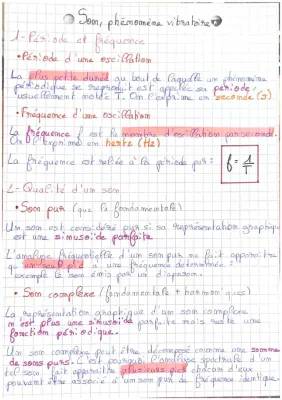 Son, phénomène vibratoire
1- Période et fréquence
• Période d'une oscillation
La plus petite durée au bout de laquelle un phénomène
périodique se reproduit est appelée sa période,
usuellement notée T. On l'exprime en seconde (s)
• Fréquence d'une oscillation
La fréquence f est le nombre d'oscillation par seconde.
On l'exprime en hertz (Hz)
La fréquence est reliée à la période par : f = 1/T
2- Qualité d'un son
• Son pur (que la fondamentale)
Un son est considéré pur si sa représentation graphique
est une sinusoïde parfaite
L'analyse fréquentielle d'un son pur ne fait apparaître
qu'un seul pic à une fréquence déterminée :
exemple le son émis par un diapason.
• Son complexe (fondamentale + harmoniques)
La représentation graphique d'un son complexe
n'est plus une sinusoïde parfaite mais reste une
fonction périodique.
Un son complexe peut être décomposé comme une somme
de sons purs. C'est pourquoi l'analyse spectrale d'un
tel son fait apparaître plusieurs pics chacun d'eux
pouvant être associé à un son pur de fréquence identique.